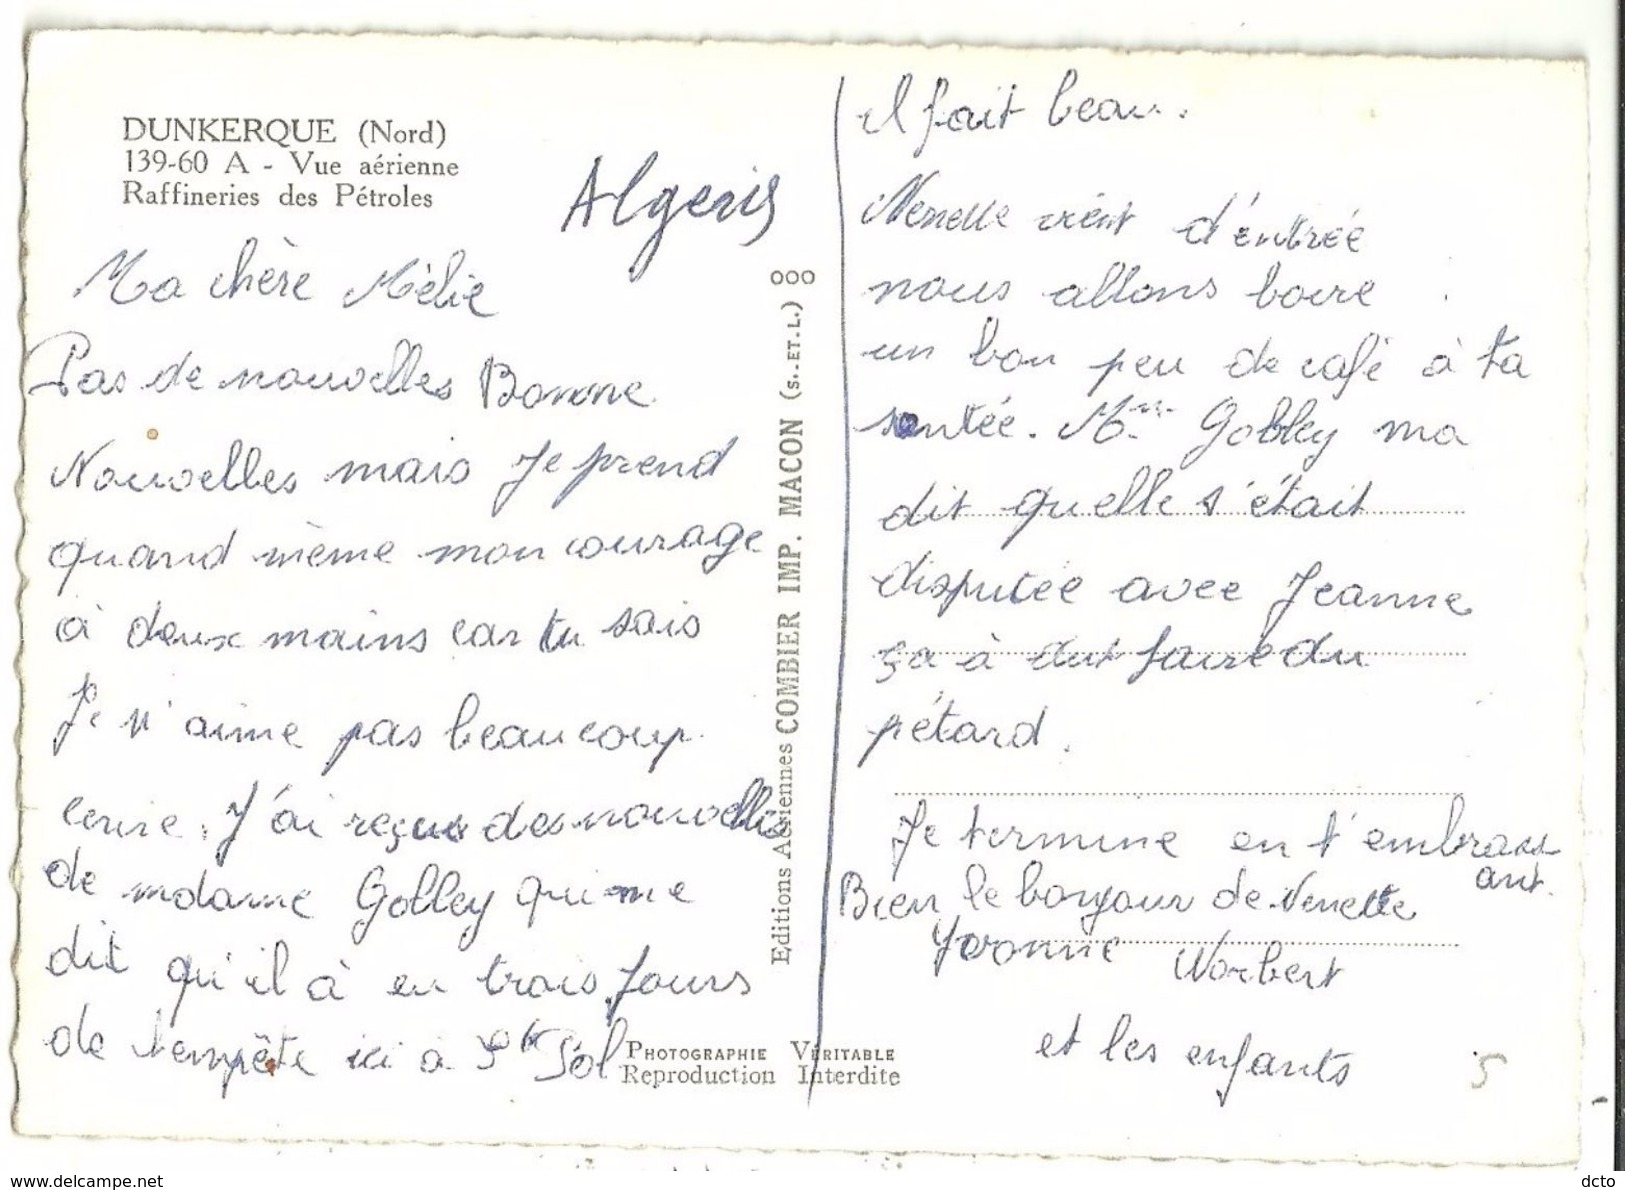 DUNKERQUE (Nord)
139-60 A - Vue aérienne
Raffineries des Pétroles
Algeris
Ma chère Mélie
Pas de nouvelles Bonne
Nouvelles mais Je prend
quand même mon courage
à deux mains car tu sais
Je n'aime pas beaucoup
écrire. J'ai reçue des nouvelles
de madame Gobley qui me
dit qu'il à eu trois Jours
de tempête ici à St Pol
000
Editions Aériennes COMBIER IMP. MACON (S.-ET.L.)
PHOTOGRAPHIE VÉRITABLE
Reproduction Interdite
il fait beau.
Nenette vient d'entrée
nous allons boire
un bon peu de café à ta
santée. Mme Gobley ma
dit quelle s'était
disputée avec Jeanne
ça à dut faire du
pétard.
Je termine en t'embrass
ant.
Bien le bonjour de Nenette
Yvonne Norbert
et les enfants
5
www.delcampe.net
dcto